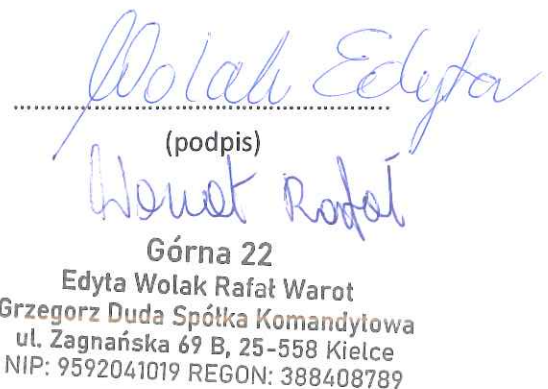 Wolak Edyta
........................................................
(podpis)
Warot Rafał
Górna 22
Edyta Wolak Rafał Warot
Grzegorz Duda Spółka Komandytowa
ul. Zagnańska 69 B, 25-558 Kielce
NIP: 9592041019 REGON: 388408789